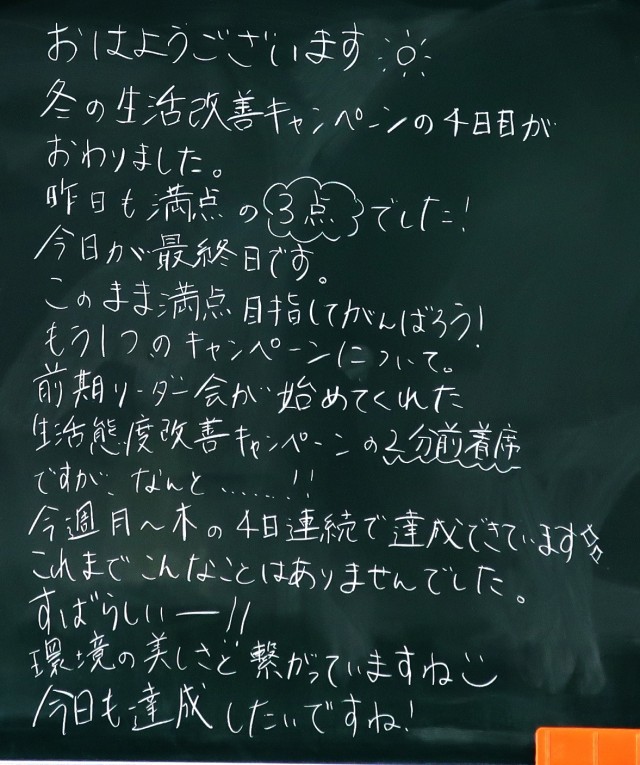 おはようございます
冬の生活改善キャンペーンの4日目が
おわりました。
昨日も満点の3点でした!
今日が最終日です。
このまま満点目指してがんばろう!
もう1つのキャンペーンについて。
前期リーダー会が始めてくれた
生活態度改善キャンペーンの2分前着席
ですが、なんと......!!
今週月〜木の4日連続で達成できています
これまでこんなことはありませんでした。
すばらしいー!!
環境の美しさと繋がっていますね
今日も達成したいですね!